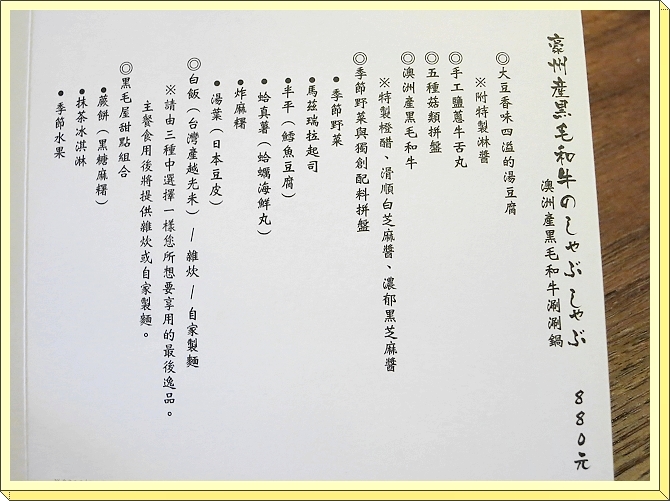 豪州産黒毛和牛のしゃぶしゃぶ 880元
澳洲產黑毛和牛涮涮鍋
◎大豆香味四溢的湯豆腐
※附特製淋醬
◎手工鹽蔥牛舌丸
◎五種菇類拼盤
◎澳洲產黑毛和牛
※特製橙醋、滑順白芝麻醬、濃郁黑芝麻醬
◎季節野菜與獨創配料拼盤
●季節野菜
●馬茲瑞拉起司
●半平（鱈魚豆腐）
●蛤真薯（蛤蠣海鮮丸）
●炸麻糬
●湯葉（日本豆皮）
◎白飯（台灣產越光米）/ 雜炊 / 自家製麵
※請由三種中選擇一樣您所想要享用的最後逸品。
主餐食用後將提供雜炊或自家製麵。
◎黑毛屋甜點組合
●蕨餅（黑糖麻糬）
●抹茶冰淇淋
●季節水果